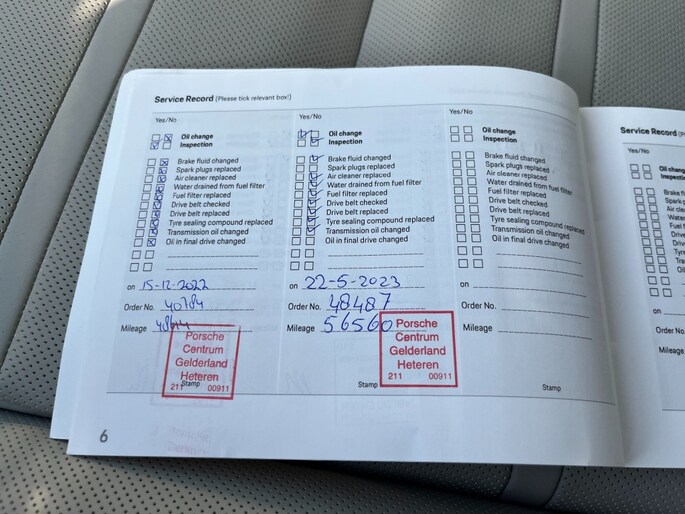 Service Record (Please tick relevant box!)
Yes/No
Oil change
Inspection
Brake fluid changed
Spark plugs replaced
Air cleaner replaced
Water drained from fuel filter
Fuel filter replaced
Drive belt checked
Drive belt replaced
Tyre sealing compound replaced
Transmission oil changed
Oil in final drive changed
on 15-12-2022
Order No. 40784
Mileage
Porsche
Centrum
Gelderland
Heteren
211 00911
Stamp
Yes/No
Oil change
Inspection
Brake fluid changed
Spark plugs replaced
Air cleaner replaced
Water drained from fuel filter
Fuel filter replaced
Drive belt checked
Drive belt replaced
Tyre sealing compound replaced
Transmission oil changed
Oil in final drive changed
on 22-5-2023
Order No. 48487
Mileage 56560
Porsche
Centrum
Gelderland
Heteren
211 00911
Stamp
Yes/No
Oil change
Inspection
Brake fluid changed
Spark plugs replaced
Air cleaner replaced
Water drained from fuel filter
Fuel filter replaced
Drive belt checked
Drive belt replaced
Tyre sealing compound replaced
Transmission oil changed
Oil in final drive changed
on
Order No.
Mileage
Stamp
6
Service Record
Yes/No
Oil
Inspection
Brake
Spark
Air
Water
Fuel
Drive
Drive
Tyre
Oil
on
Order No.
Mileage